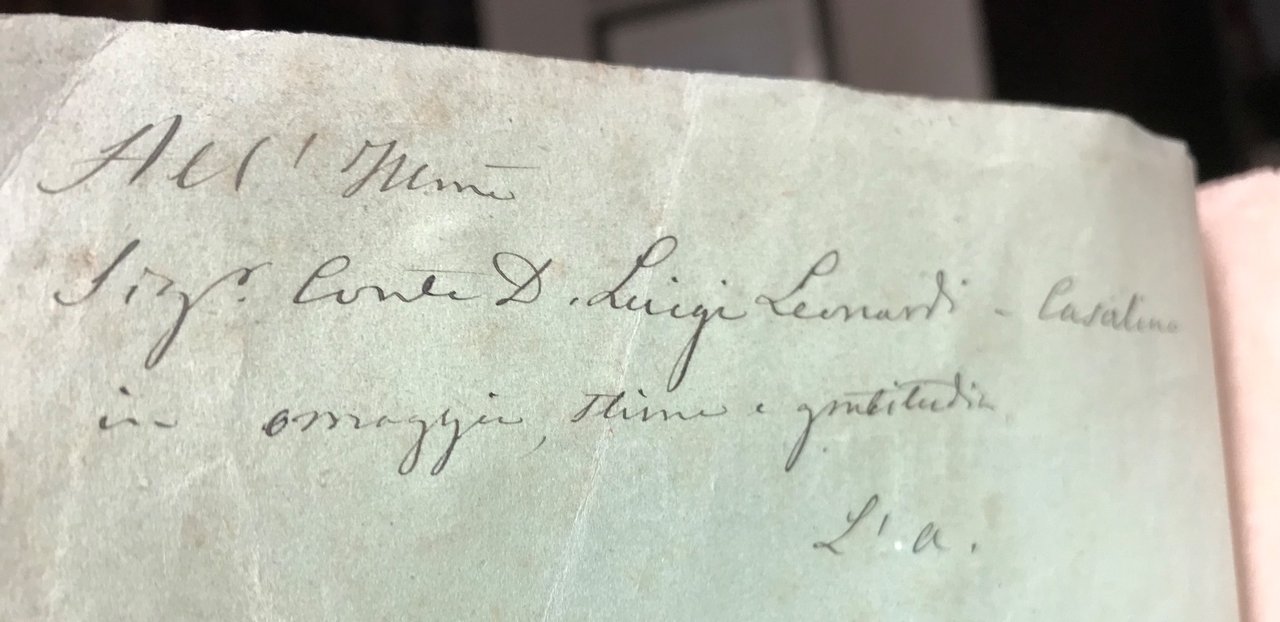 All' Illmo
Sigr. Conte D. Luigi Leonardi - Casalino
in omaggio, stima e gratitudine
L'a.